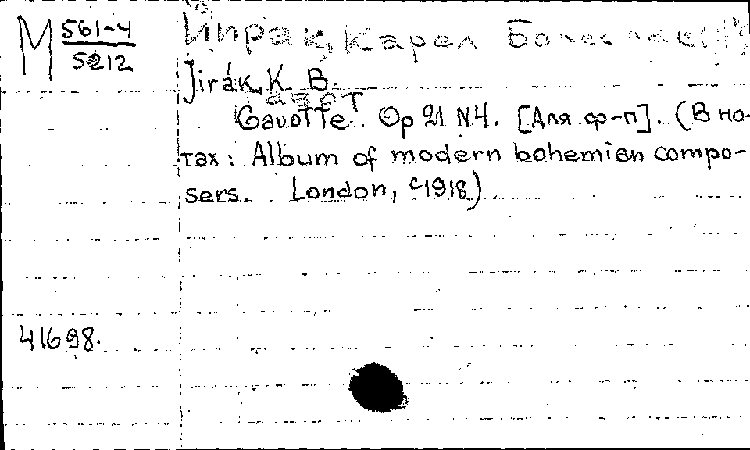 М 561-4
5212
Йирак, Карел Болеслав
Jirák, K. B.
Gavotte. Op 21 N4. [Для ф-п]. (В но-
тах: Album of modern bohemian compo-
sers. London, c1918).
41698.